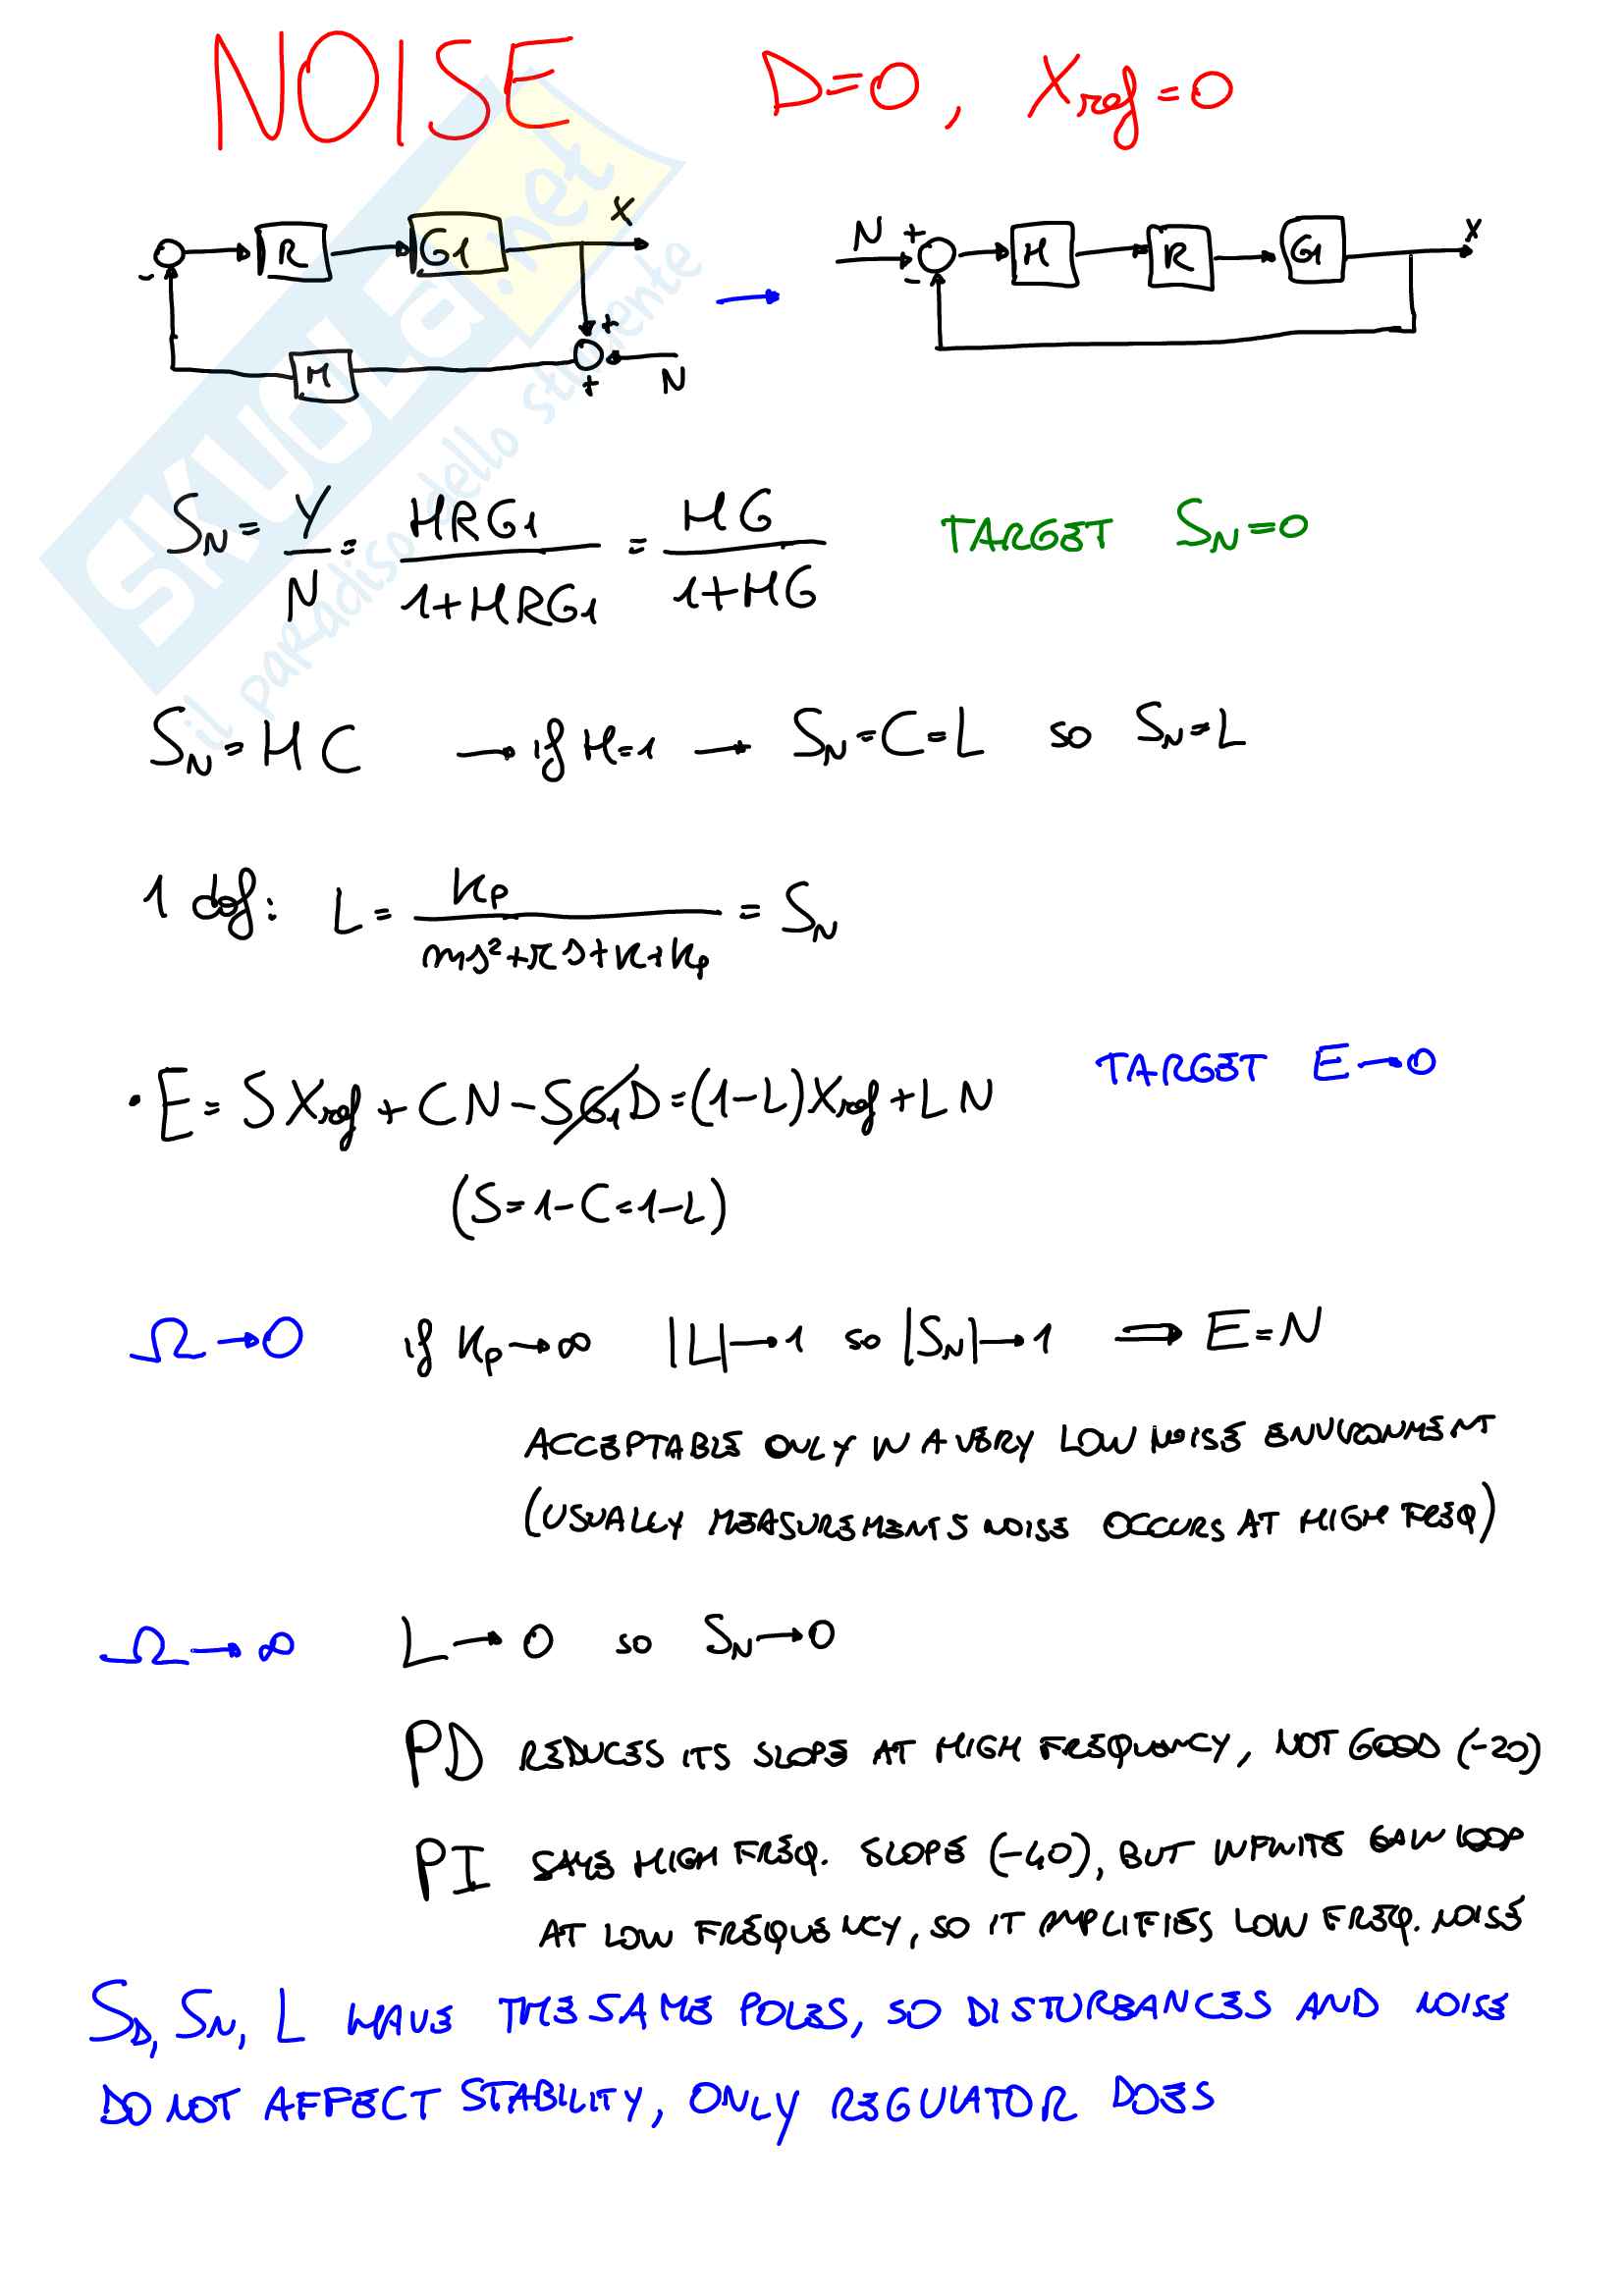 NOISE D=0, Xref=0
R G1 X N + H R G1 X
- -
+
H + N
SKUOLA.net
il paradiso dello studente
S_N = Y/N = HRG1/(1+HRG1) = HG/(1+HG) TARGET S_N=0
S_N = HC → if H=1 → S_N=C=L so S_N=L
1 dof: L = kp/(ms²+rs+k+kp) = S_N
• E = S Xref + CN - SG1D = (1-L)Xref + LN TARGET E→0
(S=1-C=1-L)
Ω→0 if Kp→∞ |L|→1 so |S_N|→1 ⟹ E=N
ACCEPTABLE ONLY IN A VERY LOW NOISE ENVIRONMENT
(USUALLY MEASUREMENTS NOISE OCCURS AT HIGH FREQ)
Ω→∞ L→0 so S_N→0
PD REDUCES ITS SLOPE AT HIGH FREQUENCY, NOT GOOD (-20)
PI SAME HIGH FREQ. SLOPE (-40), BUT INFINITE GAIN LOOP
AT LOW FREQUENCY, SO IT AMPLIFIES LOW FREQ. NOISE
S_D, S_N, L HAVE THE SAME POLES, SO DISTURBANCES AND NOISE
DO NOT AFFECT STABILITY, ONLY REGULATOR DOES